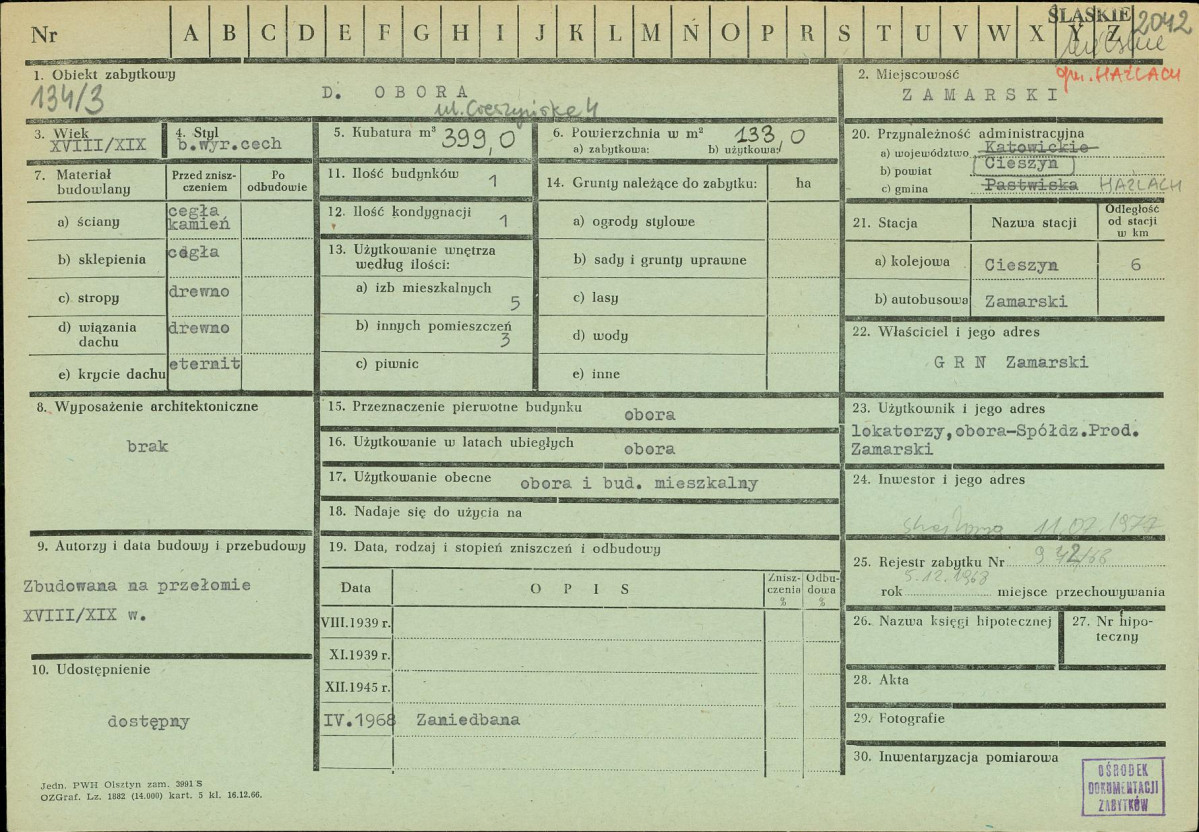 Nr A B C D E F G H I J K L M N O P R S T U V W X Y Z
ŚLĄSKIE 2042
gm. HAŻLACH
1. Obiekt zabytkowy
134/3
D. OBORA
ul. Cieszyńska 4
2. Miejscowość
ZAMARSKI
3. Wiek
XVIII/XIX
4. Styl
b.wyr.cech
5. Kubatura m³ 399,0
6. Powierzchnia w m² 133,0
a) zabytkowa: b) użytkowa:
7. Materiał budowlany
Przed zniszczeniem
Po odbudowie
a) ściany cegła kamień
b) sklepienia cegła
c) stropy drewno
d) wiązania dachu drewno
e) krycie dachu eternit
8. Wyposażenie architektoniczne
brak
9. Autorzy i data budowy i przebudowy
Zbudowana na przełomie
XVIII/XIX w.
10. Udostępnienie
dostępny
11. Ilość budynków 1
12. Ilość kondygnacji 1
13. Użytkowanie wnętrza
według ilości:
a) izb mieszkalnych 5
b) innych pomieszczeń 3
c) piwnic
14. Grunty należące do zabytku: ha
a) ogrody stylowe
b) sady i grunty uprawne
c) lasy
d) wody
e) inne
15. Przeznaczenie pierwotne budynku obora
16. Użytkowanie w latach ubiegłych obora
17. Użytkowanie obecne obora i bud. mieszkalny
18. Nadaje się do użycia na
19. Data, rodzaj i stopień zniszczeń i odbudowy
Data OPIS Zniszczenia % Odbudowa %
VIII.1939 r.
XI.1939 r.
XII.1945 r.
IV.1968 Zaniedbana
20. Przynależność administracyjna
a) województwo Katowickie
b) powiat Cieszyn
c) gmina Pastwiska HAŻLACH
21. Stacja Nazwa stacji Odległość od stacji w km
a) kolejowa Cieszyn 6
b) autobusowa Zamarski
22. Właściciel i jego adres
G R N Zamarski
23. Użytkownik i jego adres
lokatorzy,obora-Spółdz.Prod.
Zamarski
24. Inwestor i jego adres
11.02.1977
25. Rejestr zabytku Nr 972/68
5.12.1968
rok miejsce przechowywania
26. Nazwa księgi hipotecznej
27. Nr hipoteczny
28. Akta
29. Fotografie
30. Inwentaryzacja pomiarowa
OŚRODEK
DOKUMENTACJI
ZABYTKÓW
Jedn. PWH Olsztyn zam. 3991 S
OZGraf. Lz. 1882 (14.000) kart. 5 kl. 16.12.66.